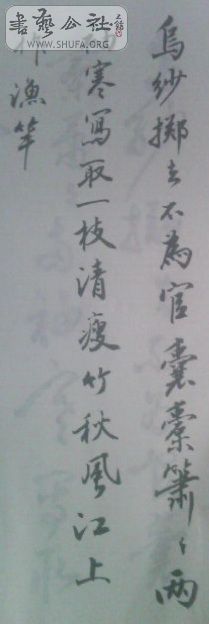 書藝公社
WWW.SHUFA.ORG
烏紗擲去不為官囊橐簫〻兩
寒寫取一枝清瘦竹秋風江上
漁竿